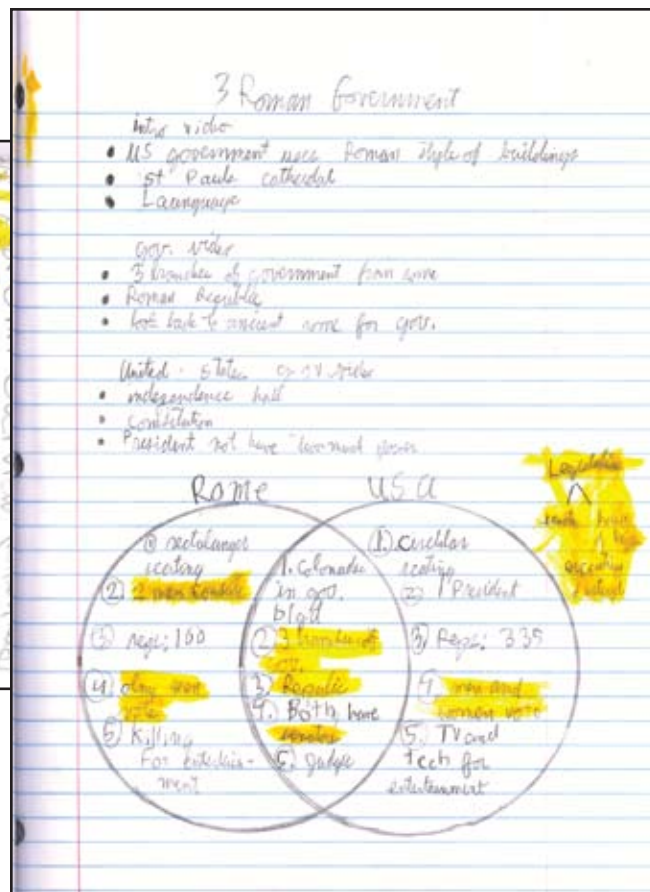 3 Roman Government
intro video
• US government uses Roman style of buildings
• St Pauls cathedal
• Launguage
gov. video
• 3 branches of government from rome
• Roman Republic
• look back to ancient rome for gov.
United States gov video
• independence hall
• constitution
• President not have too much power
Rome
① rectolanger
seating
② 2 men
③ reps: 100
④ only men
vote
⑤ Killing
For entertain-
ment
1. Colonades
in gov.
② 3 branches of
gov.
③ Repulic
4. Both have
senates
⑤ Judge
USA
①. circular
seating
② 1 President
③ Reps: 335
4. men and
women vote
5. TV and
tech for
entertainment
Legislative
senate